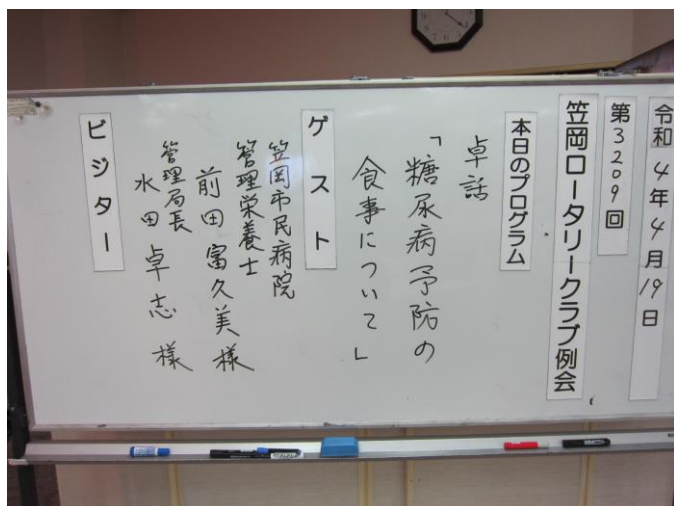 令和4年4月19日
第3209回
笠岡ロータリークラブ例会
本日のプログラム
卓話
「糖尿病予防の
食事について」
ゲスト
笠岡市民病院
管理栄養士
前田富久美様
管理局長
水田卓志様
ビジター